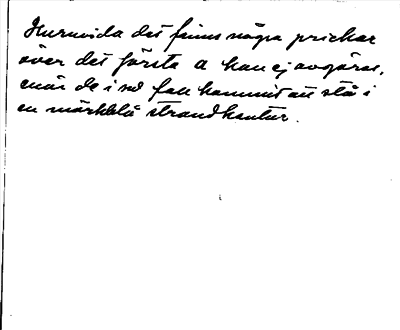 Huruvida det finns några prickar
över det första a kan ej avgöras,
enär de i så fall kommit att stå i
en mörkblå strandkantur.